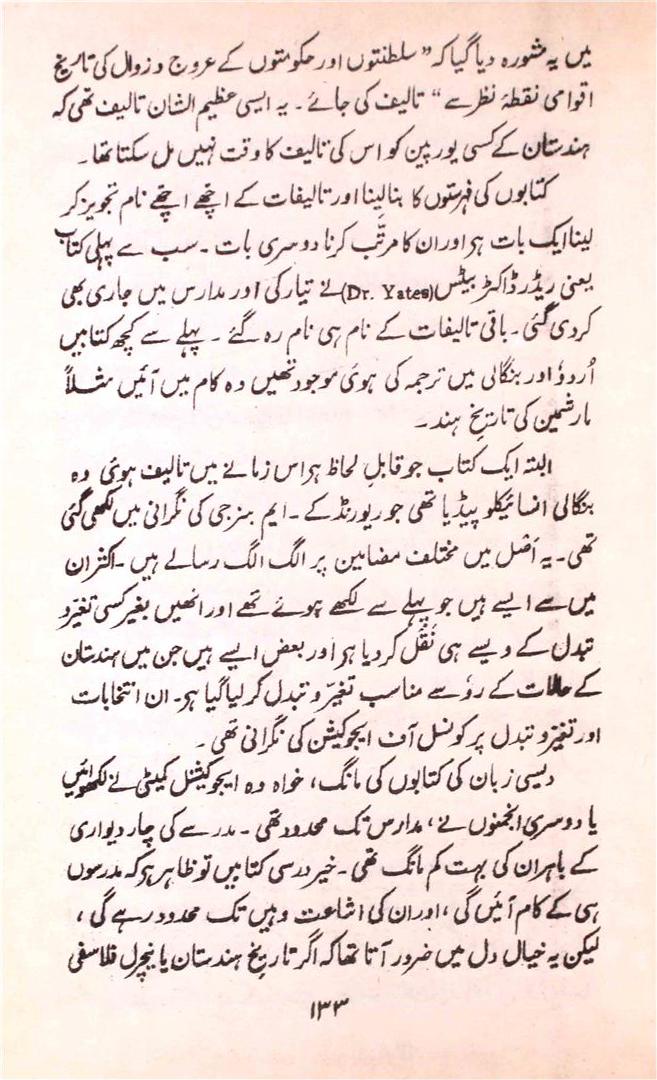 میں یہ مشورہ دیا گیا کہ ” سلطنتوں اور حکومتوں کے عروج و زوال کی تاریخ
اقوامی نقطۂ نظر سے “ تالیف کی جائے ۔ یہ ایسی عظیم الشان تالیف تھی کہ
ہندستان کے کسی یورپین کو اس کی تالیف کا وقت نہیں مل سکتا تھا ۔
کتابوں کی فہرستوں کا بنا لینا اور تالیفات کے اچھے اچھے نام تجویز کر
لینا ایک بات ہو اور ان کا مرتّب کرنا دوسری بات ۔ سب سے پہلی کتاب
یعنی ریڈر ڈاکٹر ییٹس (Dr. Yates) نے تیار کی اور مدارس میں جاری بھی
کر دی گئی ۔ باقی تالیفات کے نام ہی نام رہ گئے ۔ پہلے سے کچھ کتابیں
اُردوٗ اور بنگالی میں ترجمہ کی ہوئی موجود تھیں وہ کام میں آئیں مثلاً
مارشمین کی تاریخِ ہند ۔
البتہ ایک کتاب جو قابلِ لحاظ ہو اس زمانے میں تالیف ہوئی وہ
بنگالی انسائیکلو پیڈیا تھی جو ریورنڈ کے ۔ ایم بنرجی کی نگرانی میں لکھی گئی
تھی ۔ یہ اَصْل میں مختلف مضامین پر الگ الگ رسالے ہیں ۔ اکثر ان
میں سے ایسے ہیں جو پہلے سے لکھے ہوئے تھے اور انھیں بغیر کسی تغیّر و
تبدل کے ویسے ہی نَقْل کر دیا ہو اور بعض ایسے ہیں جن میں ہندستان
کے حالات کے روٗ سے مناسب تغیّر و تبدل کر لیا گیا ہو ۔ ان انتخابات
اور تغیّر و تبدل پر کونسل آف ایجوکیشن کی نگرانی تھی ۔
دیسی زبان کی کتابوں کی مانگ ، خواہ وہ ایجوکیشنل کمیٹی نے لکھوائیں
یا دوسری انجمنوں نے ، مدارس تک محدود تھی ۔ مدرسے کی چار دیواری
کے باہر ان کی بہت کم مانگ تھی ۔ خیر درسی کتابیں تو ظاہر ہو کہ مدرسوں
ہی کے کام آئیں گی ، اور ان کی اشاعت وہیں تک محدود رہے گی ،
لیکن یہ خیال دل میں ضرور آتا تھا کہ اگر تاریخِ ہندستان یا نیچرل فلاسفی
۱۳۳